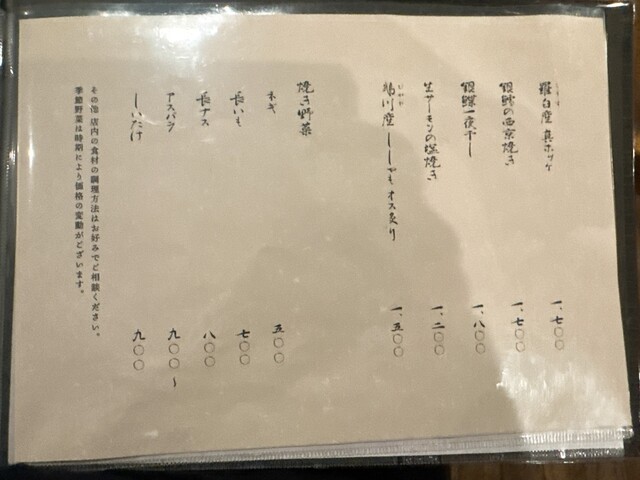 羅臼産 真ホッケ 一、七〇〇
銀鱈の西京焼き 一、七〇〇
一夜干し 一、八〇〇
生サーモンの塩焼き 一、二〇〇
鵡川産 ししゃも オス炙り 一、五〇〇
焼き野菜
ネギ 五〇〇
長いも 七〇〇
長ナス 八〇〇
アスパラ 九〇〇〜
しいたけ 九〇〇
その他 店内の食材の調理方法はお好みでご相談ください。
季節野菜は時期により価格の変動がございます。